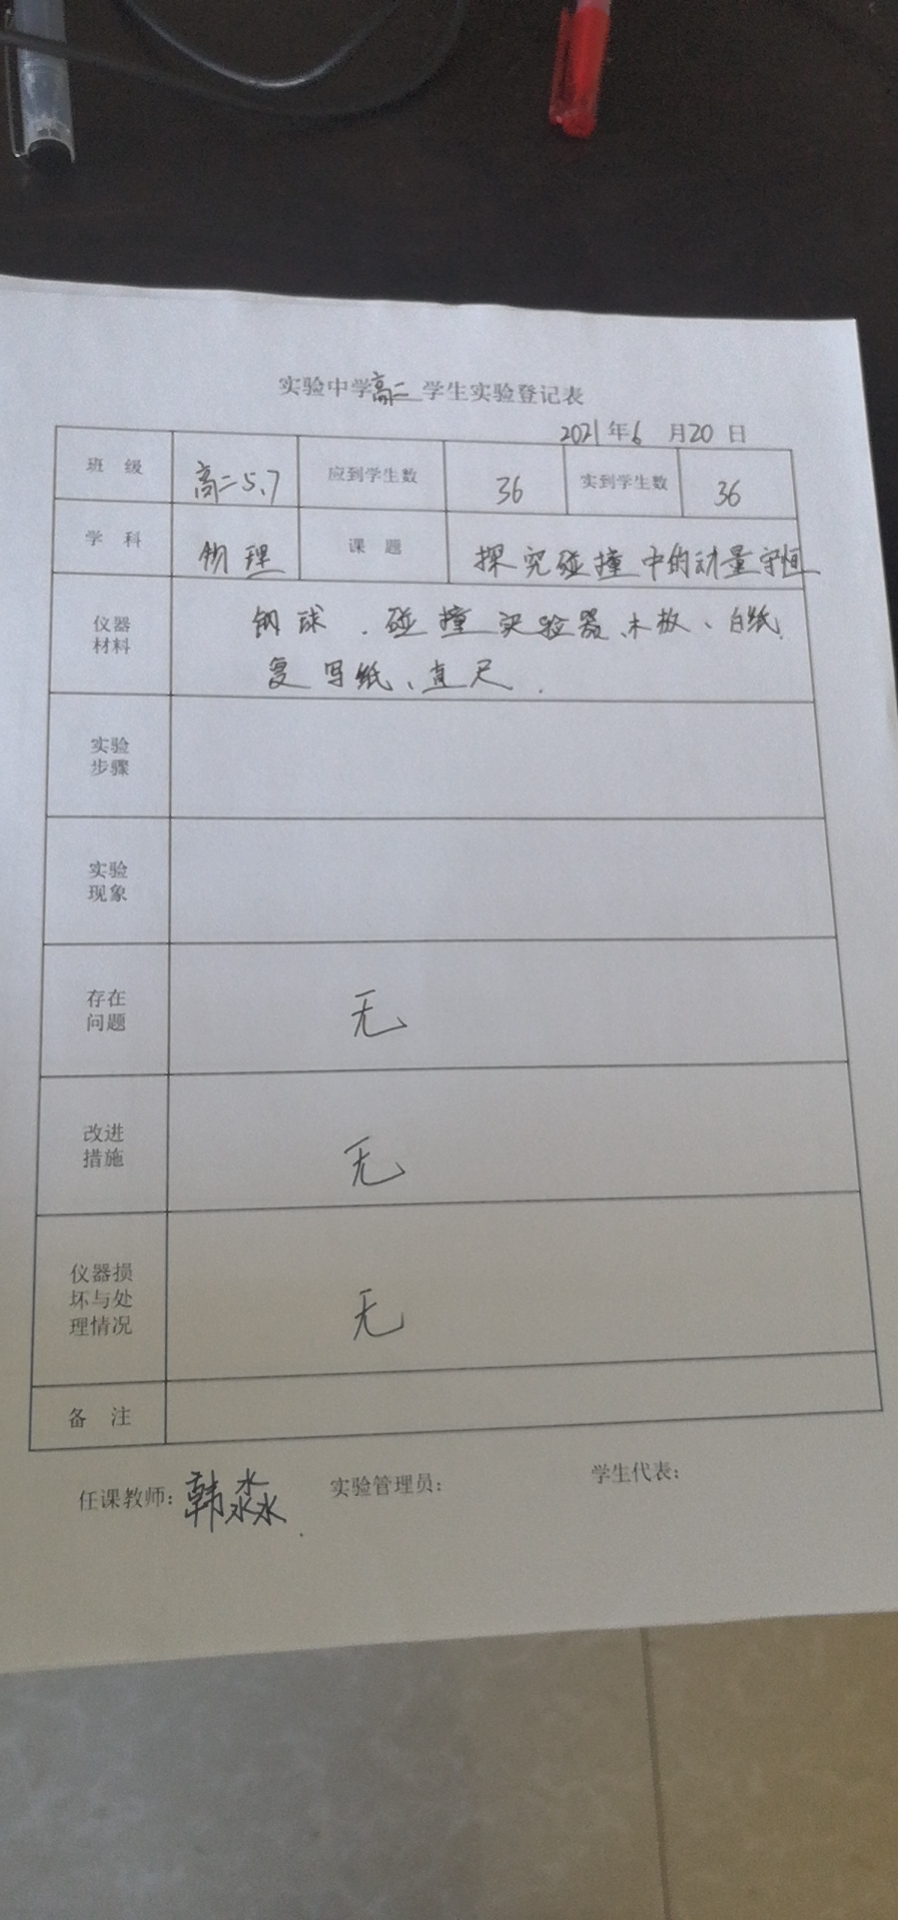 实验中学高二学生实验登记表
2021年6月20日
班 级 高二5、7 应到学生数 36 实到学生数 36
学 科 物理 课 题 探究碰撞中的动量守恒
仪器
材料
钢球、碰撞实验器、木板、白纸
复写纸、直尺.
实验
步骤
实验
现象
存在
问题
无
改进
措施
无
仪器损
坏与处
理情况
无
备 注
任课教师：韩淼 实验管理员： 学生代表：